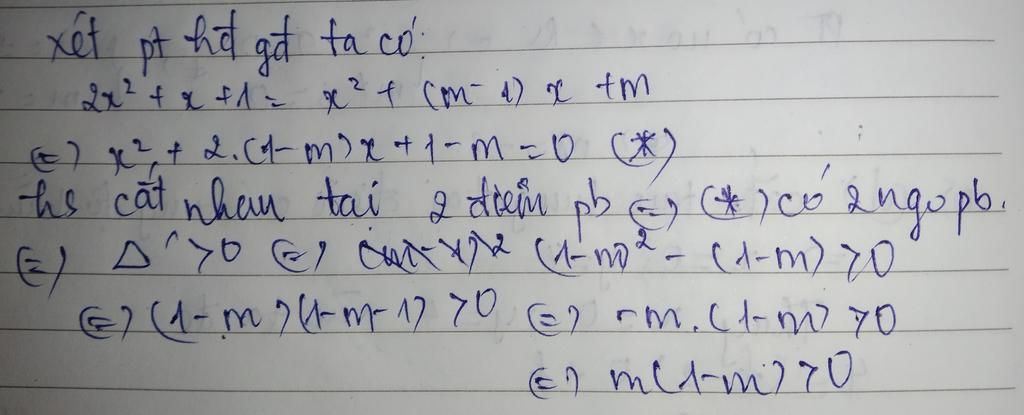 xét pt hđ gđ ta có:
2x² + x + 1 = x² + (m-1) x + m
⇔ x² + 2.(1-m)x + 1-m = 0 (*)
hs cắt nhau tại 2 điểm pb ⇔ (*) có 2 ngo pb.
⇔ Δ' > 0 ⇔ (1-m)² - (1-m) > 0
⇔ (1-m)(1-m-1) > 0 ⇔ -m.(1-m) > 0
⇔ m(1-m) > 0